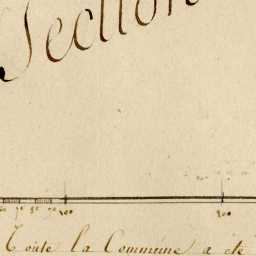 Section
100 200
Toute la Commune a été